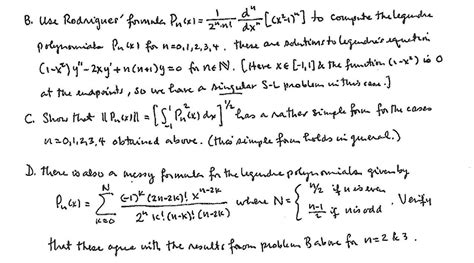 B. Use Rodrigues' formula Pₙ(x) = 1/(2ⁿ·n!) dⁿ/dxⁿ [(x²-1)ⁿ] to compute the legendre
polynomials Pₙ(x) for n=0,1,2,3,4. these are solutions to legendre's equation
(1-x²)y''-2xy'+n(n+1)y=0 for n∈N. [Here x∈[-1,1] & the function (1-x²) is 0
at the endpoints, so we have a singular S-L problem in this case.]
C. Show that ||Pₙ(x)|| = [∫₋₁¹ Pₙ²(x)dx]^{1/2} has a rather simple form for the cases
n=0,1,2,3,4 obtained above. (this simple form holds in general.)
D. there is also a messy formula for the legendre polynomials given by
Pₙ(x) = ∑_{k=0}^{N} (-1)^k (2n-2k)! x^{n-2k} / (2ⁿ k!(n-k)!(n-2k)) where N = { n/2 if n is even, (n-1)/2 if n is odd. Verify
that these agree with the results from problem B above for n=2 & 3.